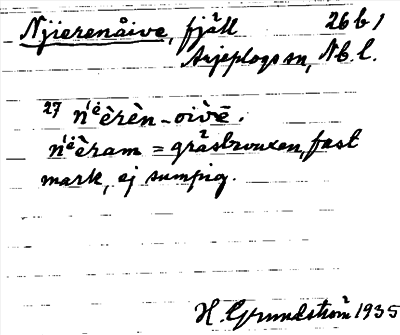 Njierenåive, fjäll 26 b 1
Arjeplogs sn, Nb. l.
27 n'ėèrèn-oivē.
n'ėèram = gräsbevuxen, fast
mark, ej sumpig.
H. Grundström 1935